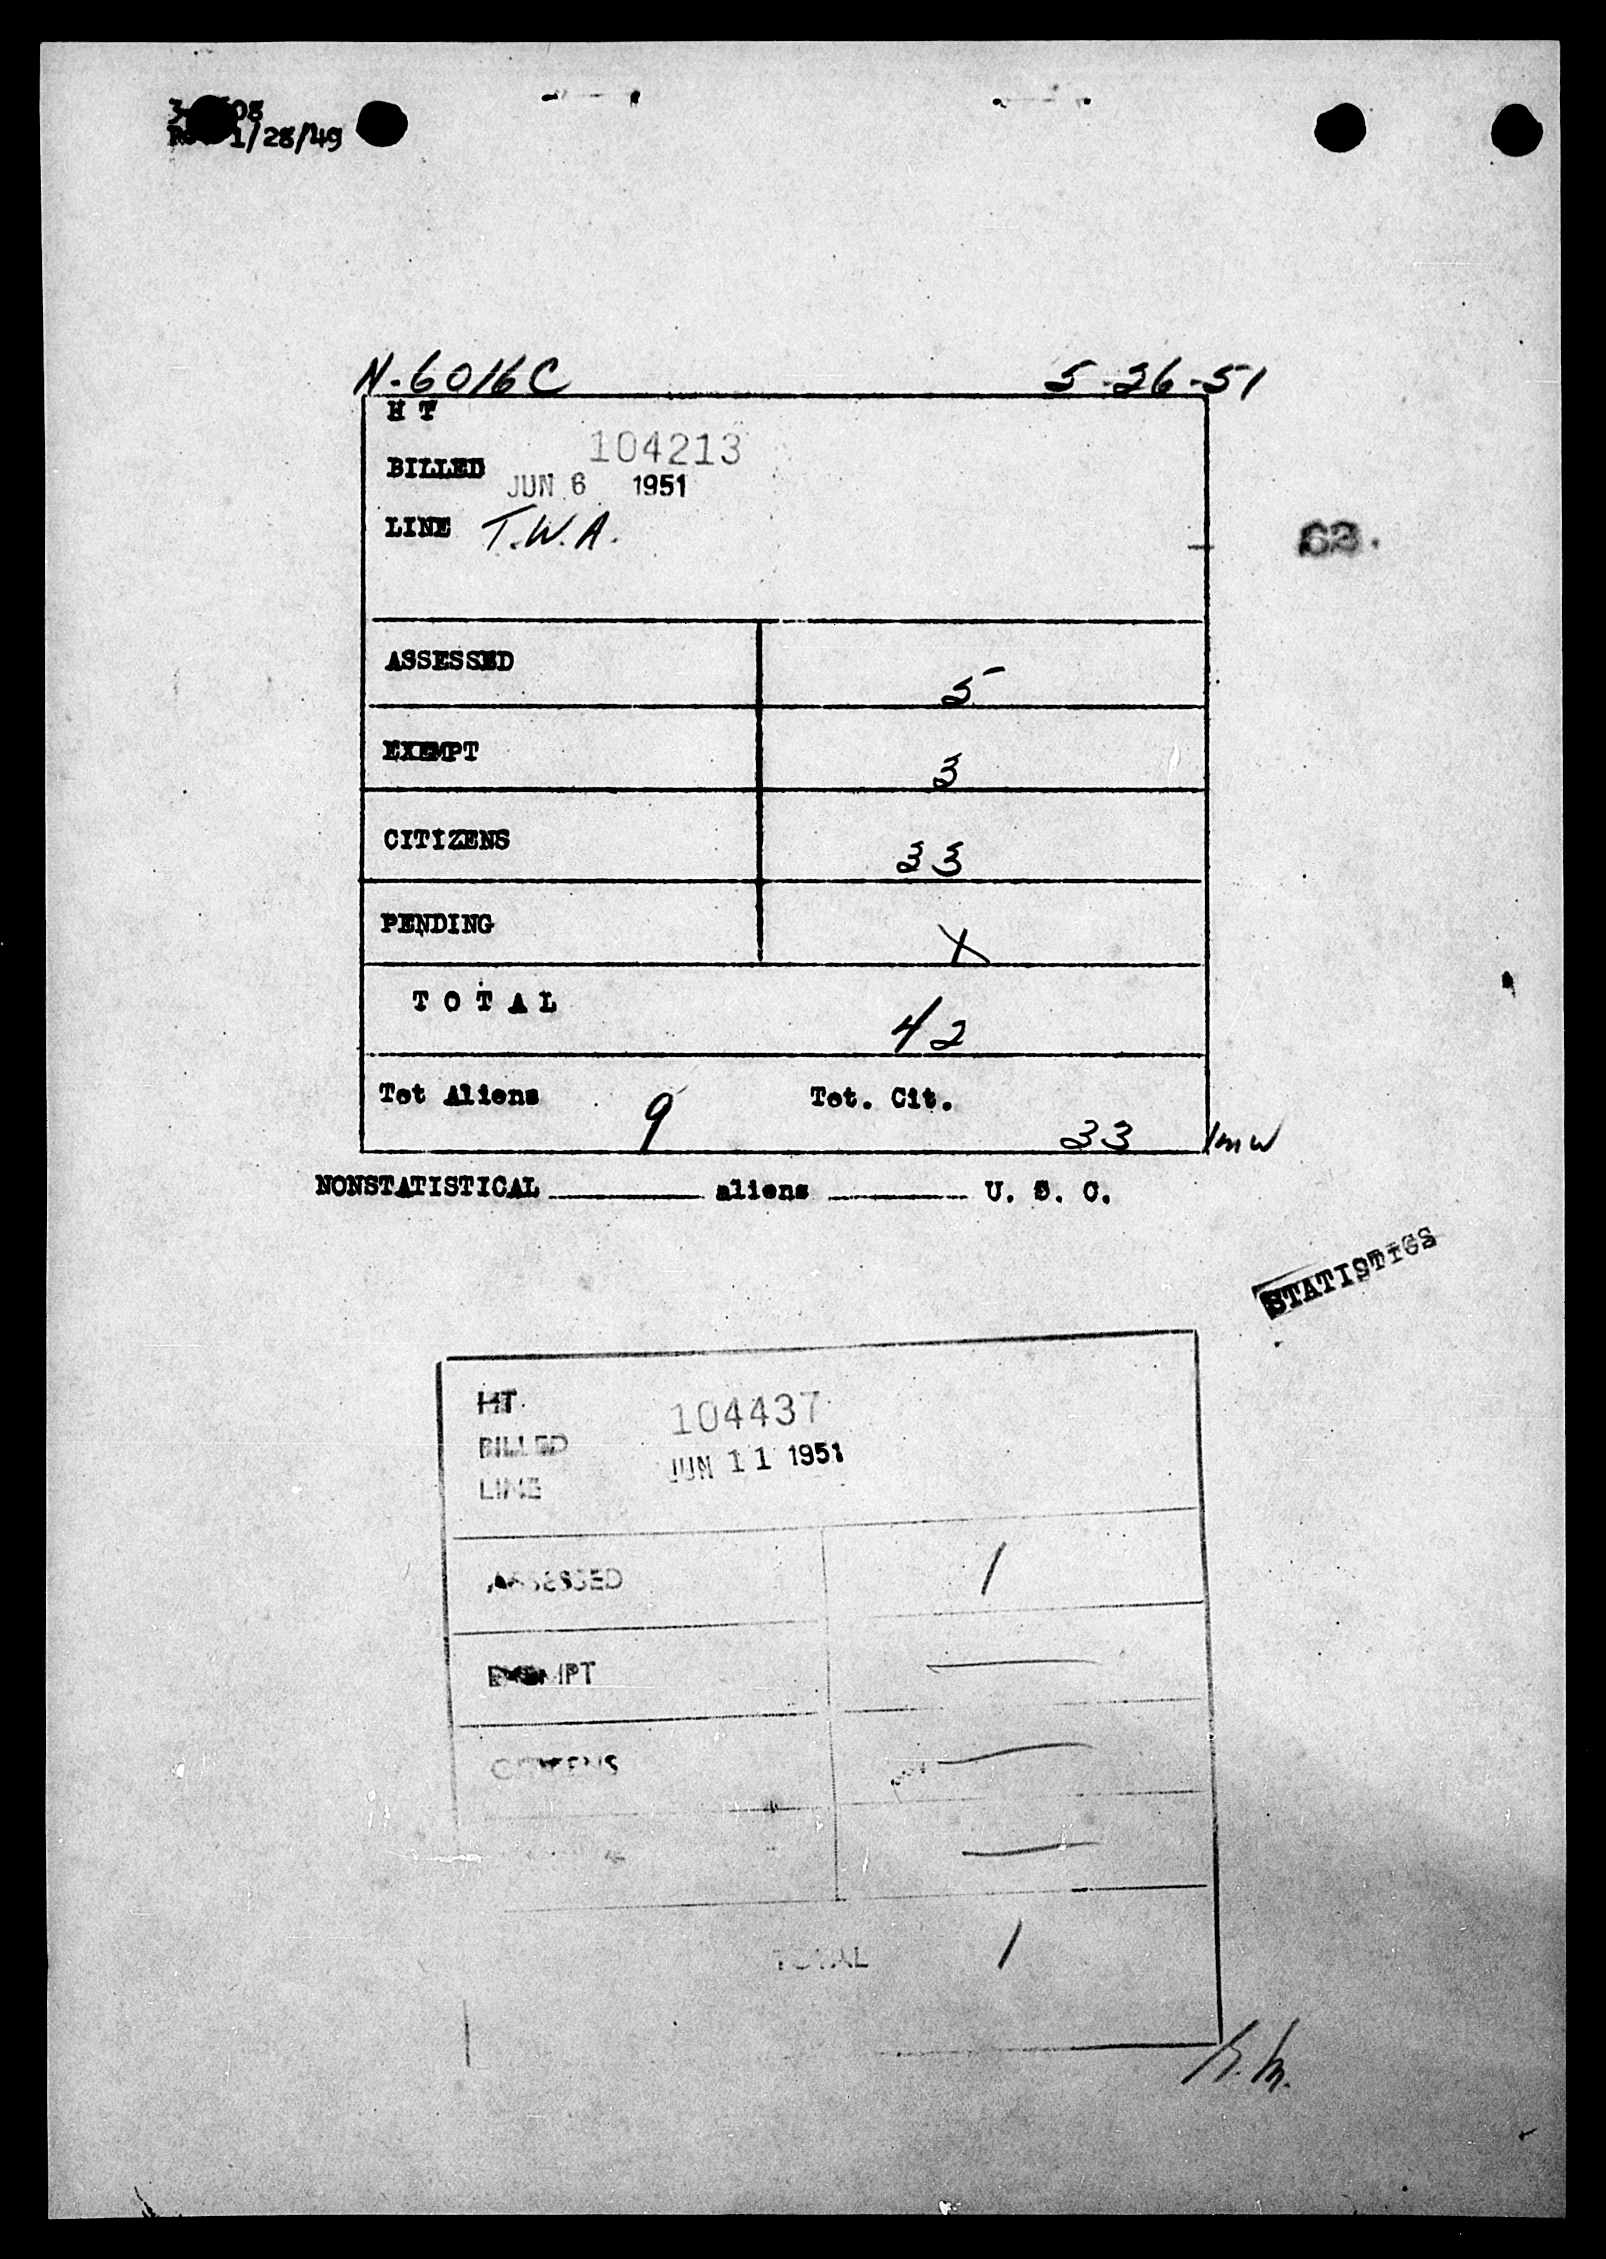 1/28/49
N-6016C 5-26-51
H T
104213
BILLED
JUN 6 1951
LINE T.W.A.
63.
ASSESSED 5
EXEMPT 3
CITIZENS 33
PENDING X
T O T A L 42
Tot Aliens 9 Tot. Cit. 33
NONSTATISTICAL ______ aliens ______ U. S. C.
STATISTICS
HT 104437
BILLED
JUN 11 1951
LINE
ASSESSED 1
EXEMPT —
CITIZENS —
—
TOTAL 1